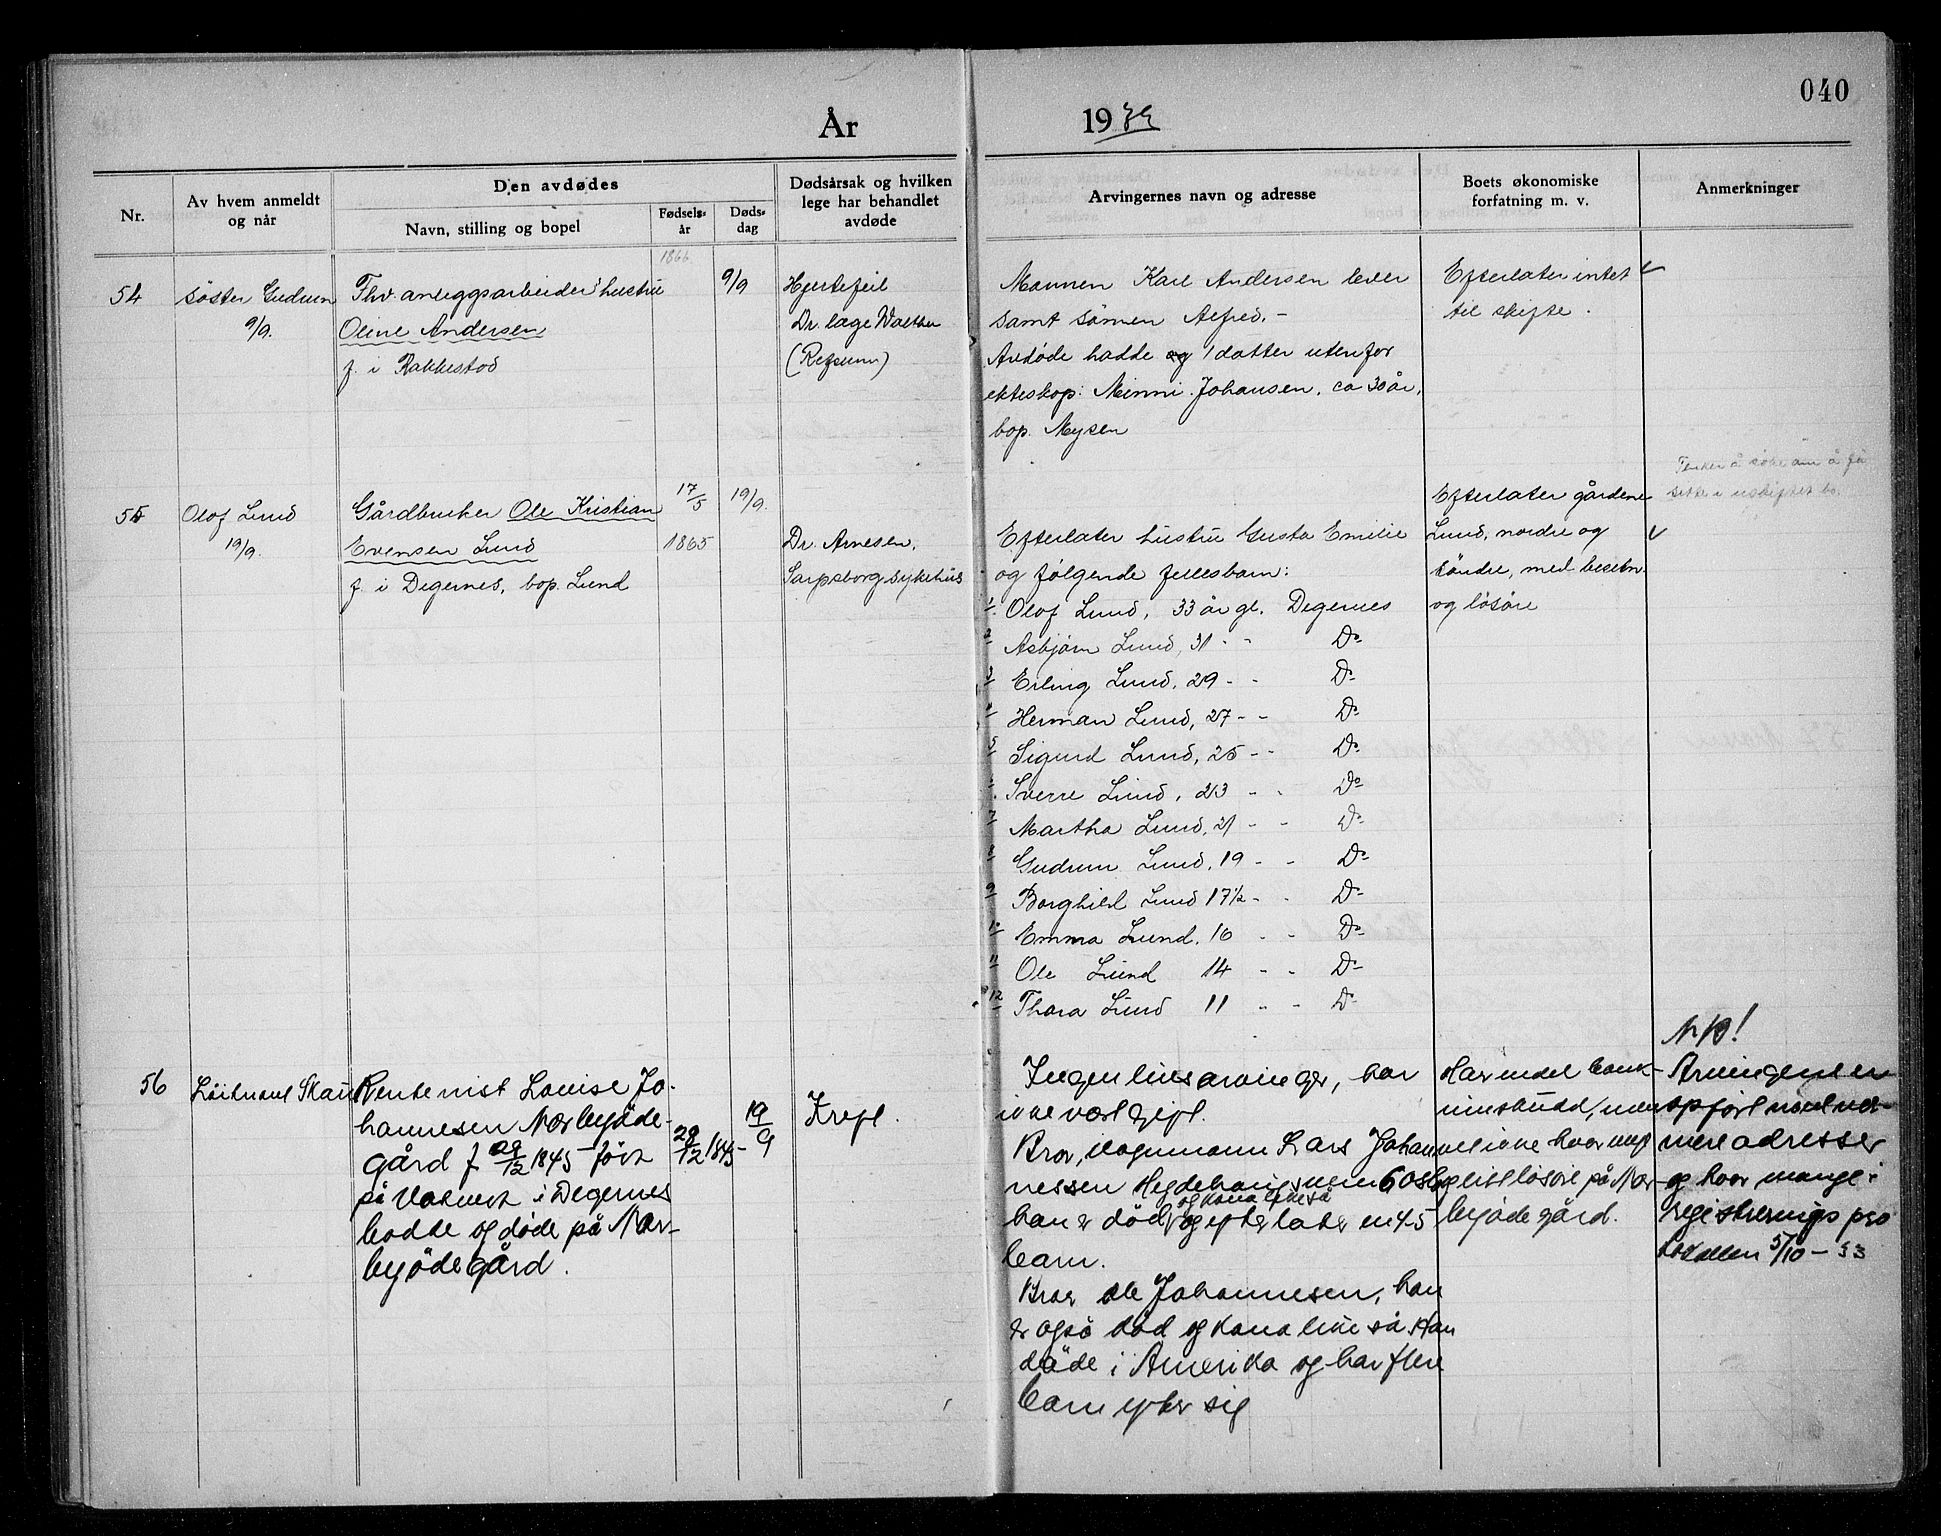 040
År 19
Nr.
Av hvem anmeldt
og når
Den avdødes
Navn, stilling og bopel
Fødsels-
år
Døds-
dag
Dødsårsak og hvilken
lege har behandlet
avdøde
Arvingernes navn og adresse
Boets økonomiske
forfatning m. v.
Anmerkninger
54
søster Gudrun
9/9.
Fhv. anleggsarbeider hustru
Oline Andersen
f. i Rakkestad
1866
9/9
Hjertefeil
Dr. læge Walther
(Refsum)
Mannen Karl Andersen lever
samt sønnen Alfred. -
Avdøde hadde og 1 datter utenfor
ekteskap: Minni Johansen, ca 30 år,
bop. Mysen
Efterlater intet
til skifte.
55
Olaf Lund
19/9.
Gårdbruker Ole Kristian
Evensen Lund
f. i Degernes, bop. Lund
17/5
1865
19/9.
Dr. Arnesen,
Sarpsborg sykehus
Efterlater hustru Gusta Emilie
og følgende fellesbarn:
1. Olaf Lund, 33 år gl. Degernes
2 Asbjørn Lund, 31 - - Do
3 Erling Lund, 29 - - Do
4 Herman Lund, 27 - - Do
5 Sigurd Lund, 25 - - Do
Sverre Lund, 23 - - Do
7 Martha Lund, 21 - - Do
8 Gudrun Lund, 19 - - Do
9 Borghild Lund 17½ - - Do
10 Emma Lund, 16 - - Do
11 Ole Lund 14 - - Do
12 Thora Lund 11 - - Do
Efterlater gårdene
Lund, nordre og
søndre, med besetn.
og løsøre
Tenker å søke om å få
sitte i uskiftet bo.
56
Løitnant Skau
Rentenist Lovise Jo-
hannesen Nærbyøde-
gård f 29/12 1845 født
på i Degernes
bodde og døde på Nær-
byødegård.
29/12 1845
19/9
Kreft.
Ingen livsarvinger, har
ikke vært gift.
Bror, vognmann Lars Johan
nessen Hegdehaugsveien 6 Oslo
og kona likeså
han er død, og efterlater en 45
barn.
Bror Ole Johannesen, han
er også død og kona likeså Han
døde i Amerika og har flere
barn efter sig
Har endel bank-
innskudd, men
vet ikke hvor meget
og litt løsøre på Nær-
byødegård.
NB!
Arvingene er
opført med nær-
mere adresser
og hvor mange i
registreringspro
tokollen 5/10 - 33